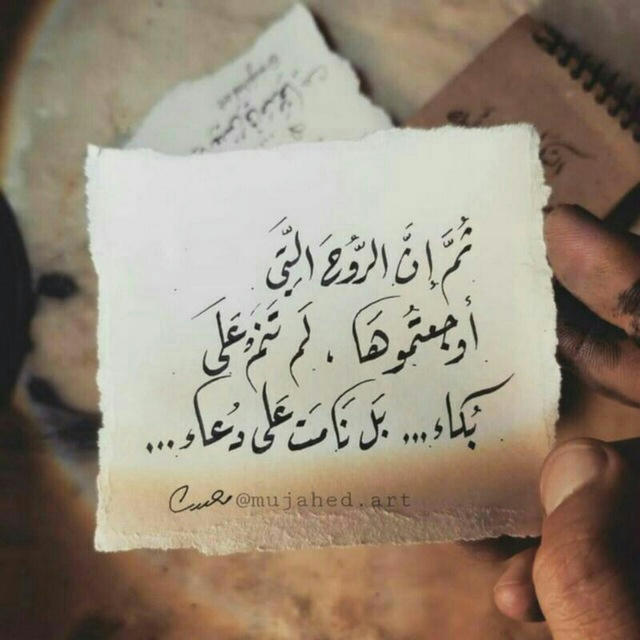 ثُمَّ إِنَّ الرُّوحَ الَّتِي
أوجعتُموهَا ، لَم تَنَمْ عَلَى
بُكاء... بَل نَامَت عَلى دُعاء...
@mujahed.art